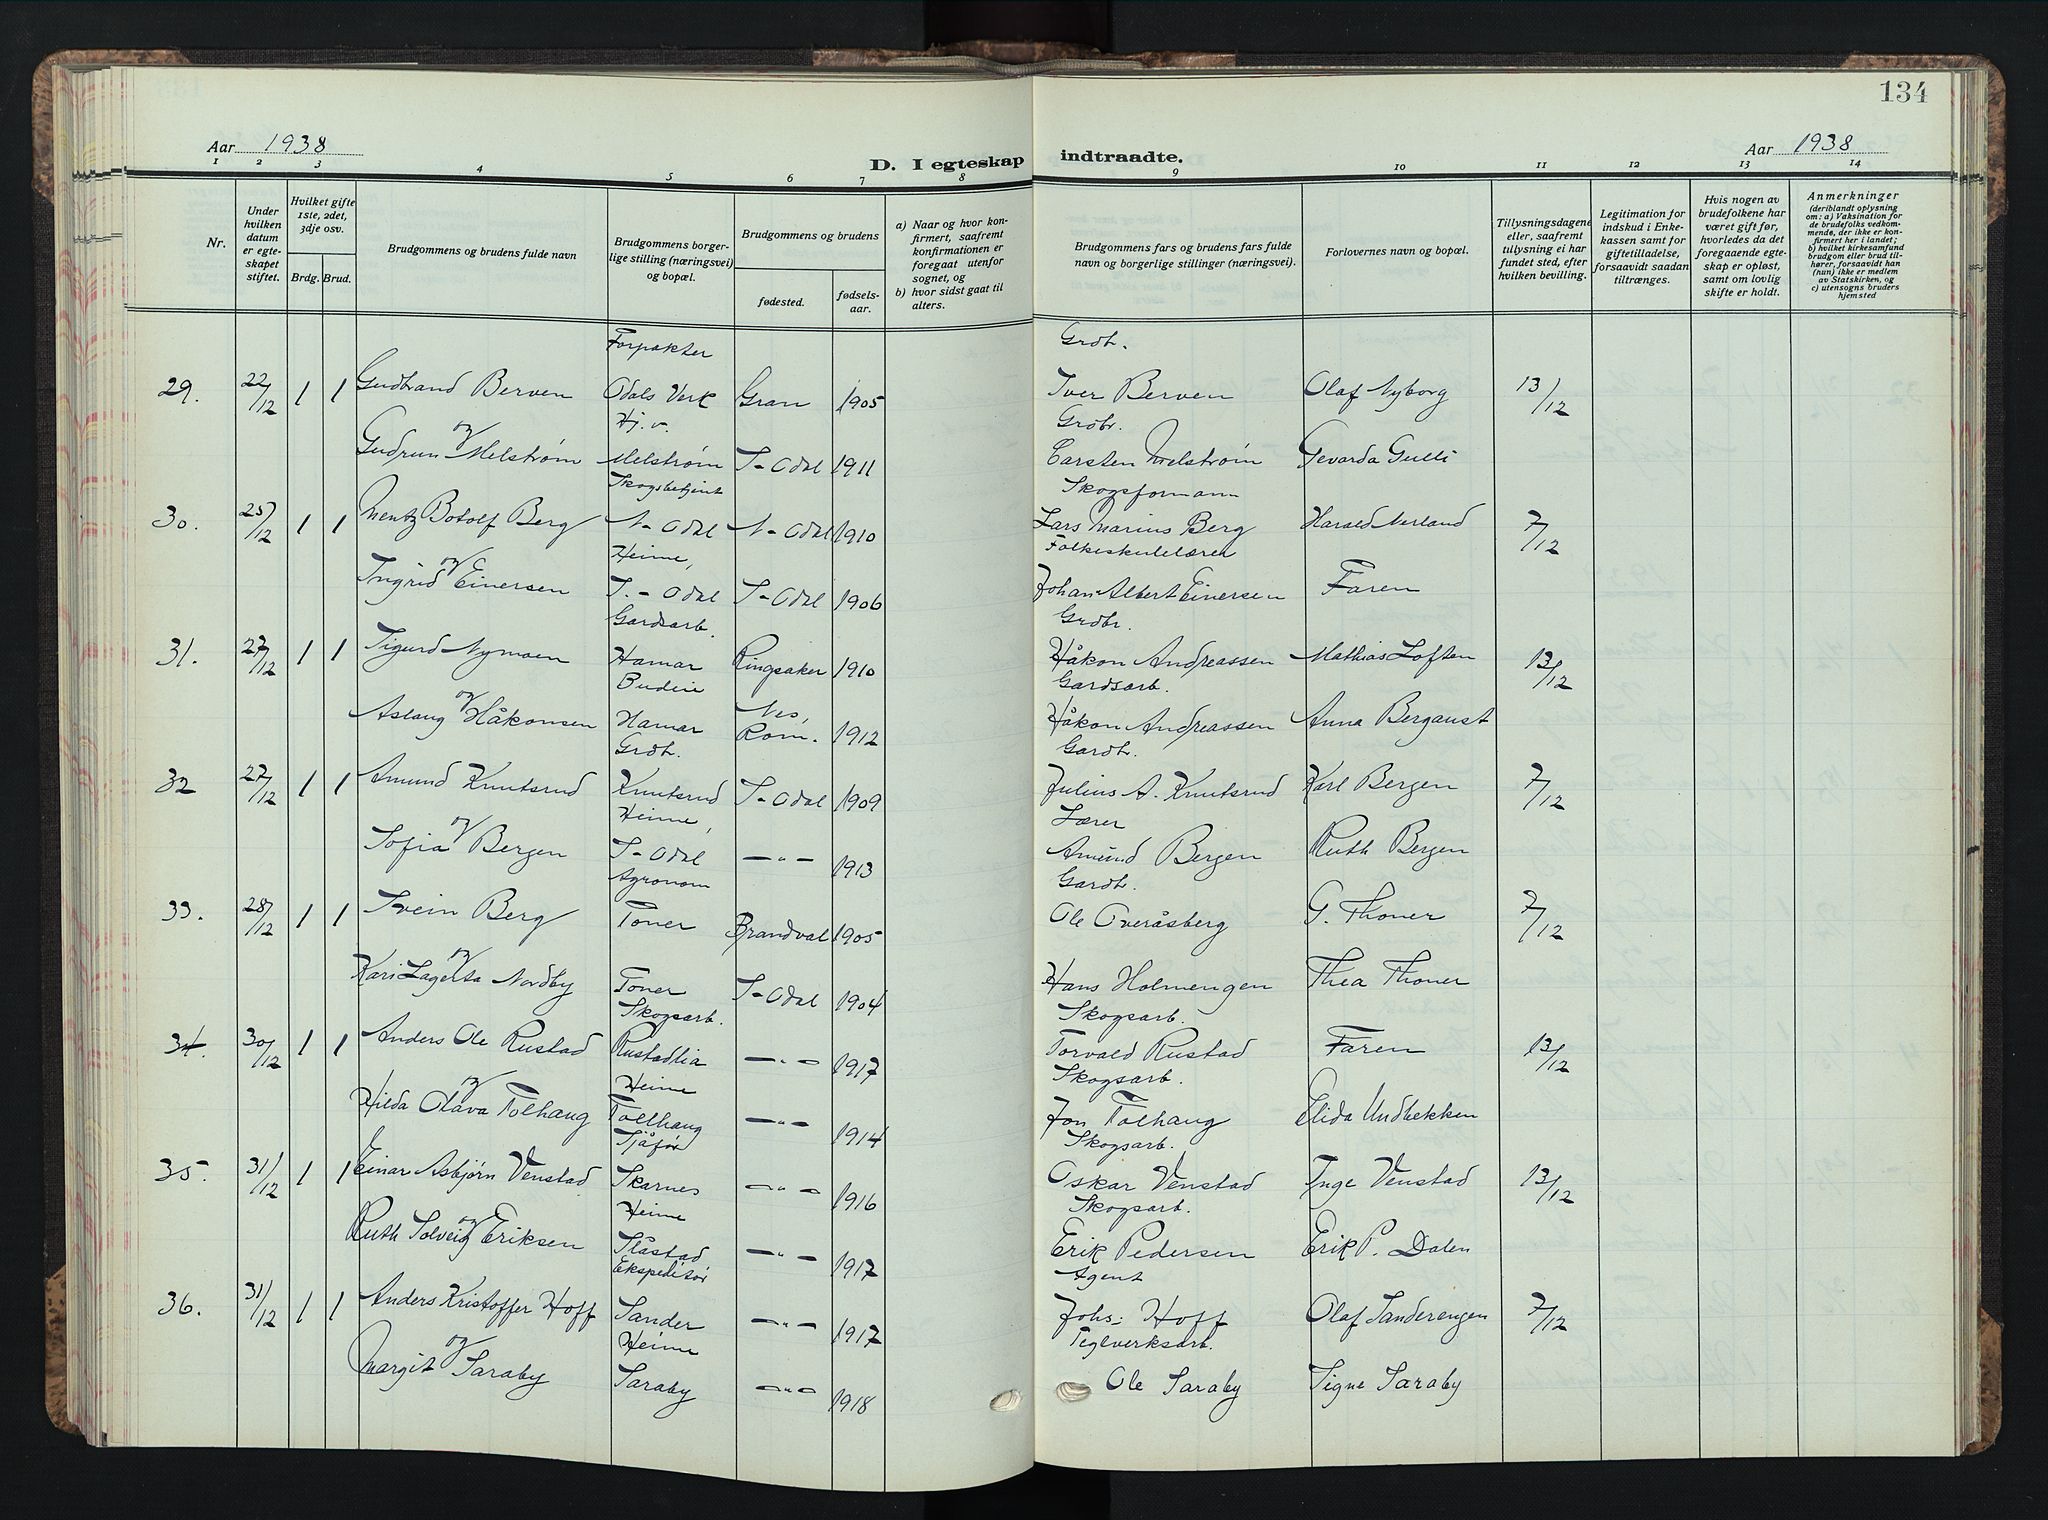 134
Aar 1938
D. I egteskap indtraadte.
Aar 1938
1 2 3 4 5 6 7 8 9 10 11 12 13 14
Nr.
Under hvilken datum er egteskapet stiftet.
Hvilket gifte 1ste, 2det, 3dje osv.
Brdg. Brud.
Brudgommens og brudens fulde navn
Brudgommens borgerlige stilling (næringsvei) og bopæl.
Brudgommens og brudens
fødested. fødselsaar.
a) Naar og hvor konfirmert, saafremt konfirmationen er foregaat utenfor sognet, og
b) hvor sidst gaat til alters.
Brudgommens fars og brudens fars fulde navn og borgerlige stillinger (næringsvei).
Forlovernes navn og bopæl.
Tillysningsdagene eller, saafremt tillysning ei har fundet sted, efter hvilken bevilling.
Legitimation for indskud i Enkekassen samt for giftetilladelse, forsaavidt saadan tiltrænges.
Hvis nogen av brudefolkene har været gift før, hvorledes da det foregaaende egteskap er opløst, samt om lovlig skifte er holdt.
Anmerkninger (deriblandt oplysning om: a) Vaksination for de brudefolks vedkommende, der ikke er konfirmert her i landet; b) hvilket kirkesamfund brudgom eller brud tilhører, forsaavidt han (hun) ikke er medlem av Statskirken, og c) utensogns bruders hjemsted
Forpakter Grdb.
29. 22/12 1 1 Gudbrand Berven Odals Verk Gran 1905 Iver Berven Olaf Nyborg 13/12
og Hj. v. Grdbr.
Gudrun Melstrøm Melstrøm S-Odal 1911 Carsten Melstrøm Gevarda Gulli
Skogsbetjent Skogsformann
30. 25/12 1 1 Mentz Botolf Berg N-Odal N-Odal 1910 Lars Marius Berg Harald Nerland 7/12
og Heime, Folkeskulelærer
Ingrid Einersen S.-Odal S-Odal 1906 Johan Albert Einersen Faren
Gardsarb. Grdbr.
31. 27/12 1 1 Sigurd Nymoen Hamar Ringsaker 1910 Håkon Andreassen Mathias Loften 13/12
og Budeie Nes, Gardsarb.
Aslaug Håkonsen Hamar Rom. 1912 Håkon Andreassen Anna Bergaust
Grdb. Gardb.
32 27/12 1 1 Amund Knutsrud Knutsrud S-Odal 1909 Julius A. Knutsrud Karl Bergen 7/12
og Heime, Lærer
Sofia Bergen S-Odal — " — 1913 Amund Bergen Ruth Bergen
Agronom Gardb.
33. 28/12 1 1 Svein Berg Toner Brandval 1905 Ole Overåsberg G. Thoner 7/12
og
Kari Lagerta Nordby Toner S-Odal 1904 Hans Holmengen Thea Thoner
Skogsarb. Skogsarb.
34. 30/12 1 1 Anders Ole Rustad Rustadlia — " — 1917 Torvald Rustad Faren 13/12
og Heime Skogsarb.
Hilda Olava Tolhaug Tollhaug — " — 1914 Jon Tolhaug Elida Undbekken
Sjåfør Skogsarb.
35. 31/12 1 1 Einar Asbjørn Venstad Skarnes — " — 1916 Oskar Venstad Inge Venstad 13/12
og Heime Skogsarb.
Ruth Solveig Eriksen Slåstad — " — 1917 Erik Pedersen Erik P. Dalen
Ekspeditør Agent
36. 31/12 1 1 Anders Kristoffer Hoff Sander — " — 1917 Johs: Hoff Olaf Sanderengen 7/12
og Heime Teglverksarb.
Margit Saraby Saraby — " — 1918 Ole Saraby Signe Saraby